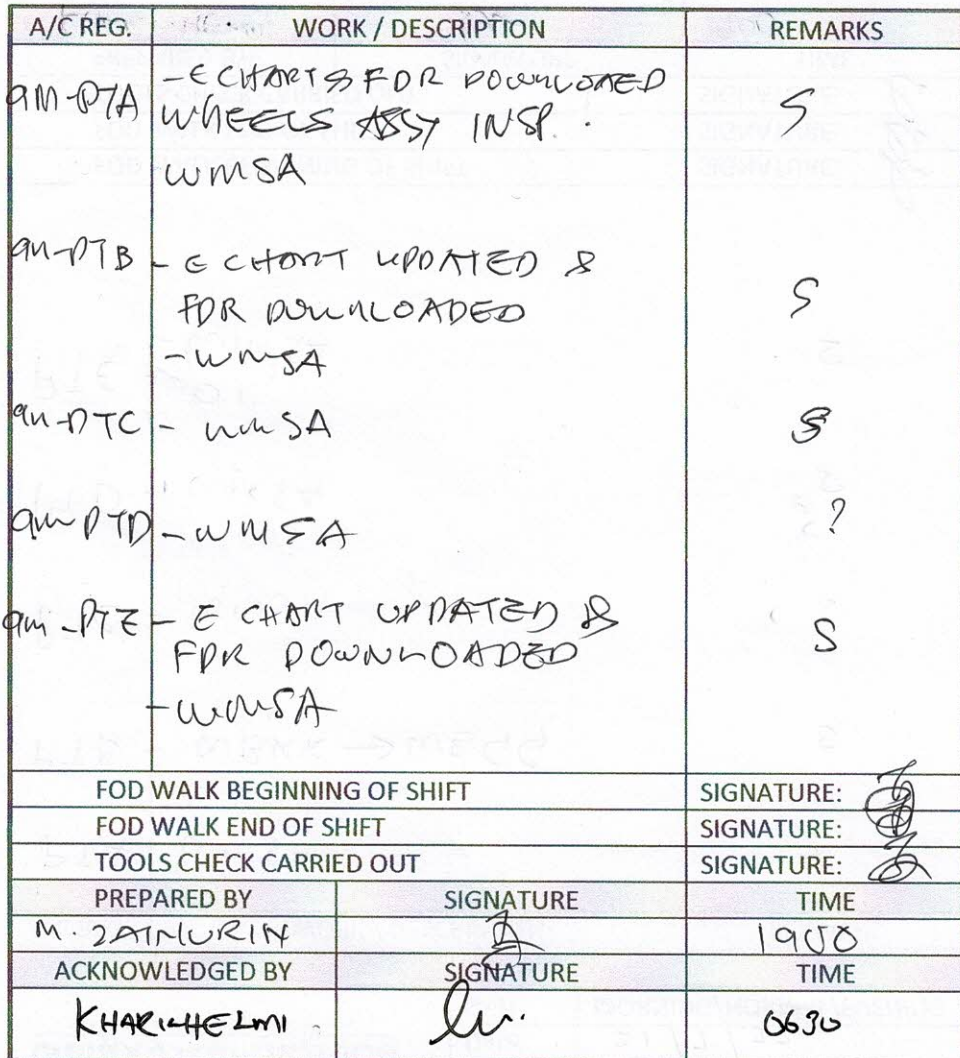 A/C REG. WORK / DESCRIPTION REMARKS
9M-PTA - E CHART & FDR DOWNLOADED S
WHEELS ASSY INSP.
WMSA
9M-PTB - E CHART UPDATED &
FDR DOWNLOADED S
- WMSA
9M-PTC - WMSA S
9M-PTD - WMSA ?
9M-PTE - E CHART UPDATED &
FDR DOWNLOADED S
- WMSA
FOD WALK BEGINNING OF SHIFT SIGNATURE:
FOD WALK END OF SHIFT SIGNATURE:
TOOLS CHECK CARRIED OUT SIGNATURE:
PREPARED BY SIGNATURE TIME
M ZAINURIN 1900
ACKNOWLEDGED BY SIGNATURE TIME
KHARI-HELMI 0630